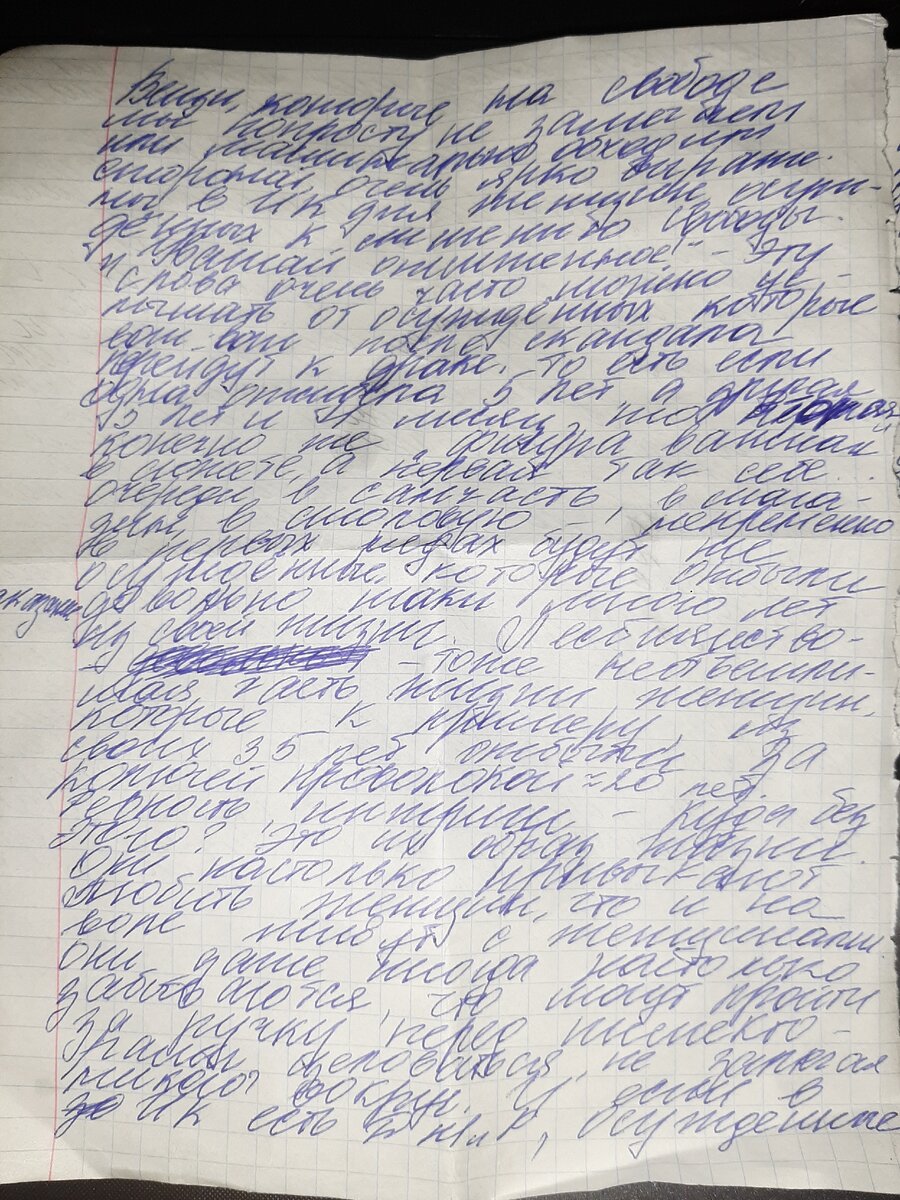 Вещи, которые на свободе
мы попросту не замечаем
или машинально обходим
стороной, очень ярко выраже-
ны в ИК для женщин осуж-
дённых к лишению свободы.
"Уважай отсиженное" - Эту
слова очень часто можно ус-
лышать от осужденных которые
вот вот после скандала
перейдут к драке. То есть если
одна отсидела 5 лет а другая
5 лет и 1 месяц, то вторая,
конечно же, фигура важная
в сюжете, а первая так себе...
очереди в санчасть, в мага-
зин, в столовую -, непременно
в первых рядах будут же
осужденные, которые отбыли
довольно таки много лет
из своей жизни. Лесбиянство-
- тоже неотъемли-
мая часть жизни женщин,
которые к примеру, из
своих 35 лет отбыли за
колючей проволокой ≈20 лет.
Ревность, интриги - куда без
этого? Это их образ жизни.
Они настолько привыкают
любить женщин, что и на
воле живут с женщинами
они даже иногда настолько
забываются, что могут пройти
за ручку перед инспекто-
рами, целоваться, не замечая
никого вокруг. И если в
ИК есть , осужденные